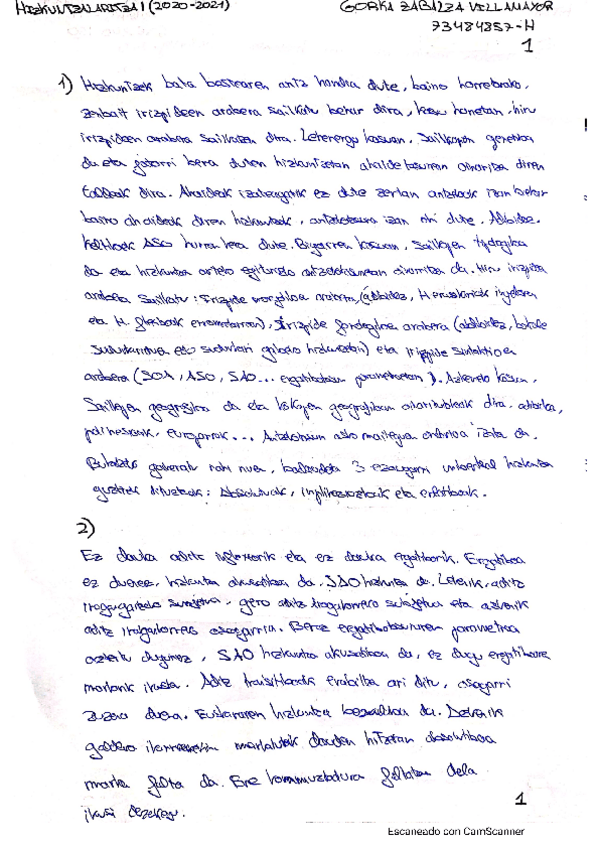 HIZKUNTZALARITZA I (2020-2021) GORKA ZABALZA VILLAMAYOR
73484857-H
1
1) Hizkuntzek bata bestearen antz handia dute, baino horretarako,
zenbait irizpideen arabera sailkatu behar dira, kasu honetan, hiru
irizpideen arabera sailkatzen dira. Lehenengo kasuan, Sailkapen genetikoa
da eta jatorri bera duten hizkuntzetan ahaidetasunean oinarritzen diren
taldeak dira. Ahaideak izateagatik ez dute zertan antzekoak izan behar
baino ahaideak diren hizkuntzek, antzekotasuna izan ohi dute. Adibidez,
keltikoek ASO hurrenkera dute. Bigarren kasuan, Sailkapen tipologikoa
da eta hizkuntza arteko egiturazko antzekotasunean oinarritzen da. Hiru irizpide
arabera sailkatu: Irizpide morfologikoa arabera, (adibidez, H eranskariak
eta H. flexiboak), Irizpide fonologikoa arabera (adibidez, bokale
eta irizpide sintaktikoen
arabera (SOA, ASO, SAO... ergatibotasun parametroetan). Azkeneko kasuan,
Sailkapen geografikoa da eta kokapen geografikoan oinarritutakoak dira, adibidez,
polinesiarrak, europarrak... Antzekotasun asko maileguen ondorioa izaten da.
Bukatzeko gaineratu nahi nuen, badaudela 3 ezaugarri unibertsal hizkuntza
guztiek dituztenak: Absolutuak, inplikaziozkoak eta erlatiboak.
2)
Ez dauka aditz inflexiorik eta ez dauka ergatiborik. Ergatiboa
ez duenez, hizkuntza akusatiboa da. SAO hizkuntza da. Lehenik, aditz
iragangaitzeko subjektua, gero aditz iragankorreko subjektua eta azkenik
aditz iragankorreko osagarria. Beraz ergatibotasunaren parametroa
aztertu dugunez, SAO hizkuntza akusatiboa da, ez dugu ergatiboaren
markarik ikusten. Aditz transitiboak erabiltzen ari ditu, osagarri
zuzena duena. Euskararen hizkuntza bezalakoa da. Azkenik
galdera ikurraren markatutak dauden hitzetan absolutiboa
marka falta da. Ere konmutazioa faltatzen dela
ikusi dezakegu.
1
Escaneado con CamScanner